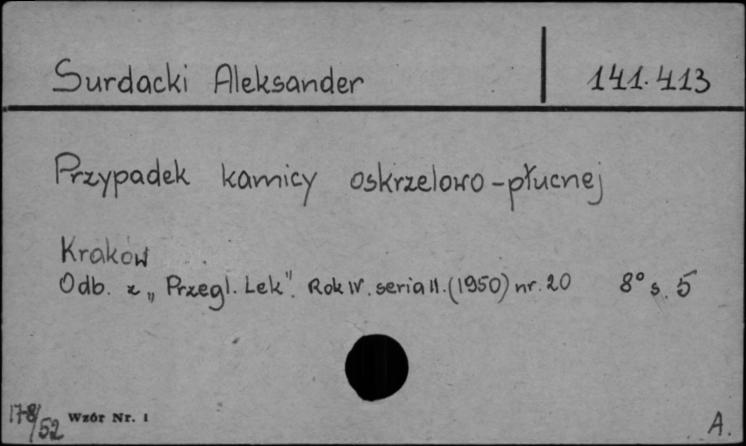 Surdacki Aleksander
141.413
Przypadek kamicy oskrzelowo-płucnej
Kraków
Odb. z „Przegl. Lek". Rok IV. seria II. (1950) nr. 20 8° s. 5
178/52 Wzór Nr. 1
A.